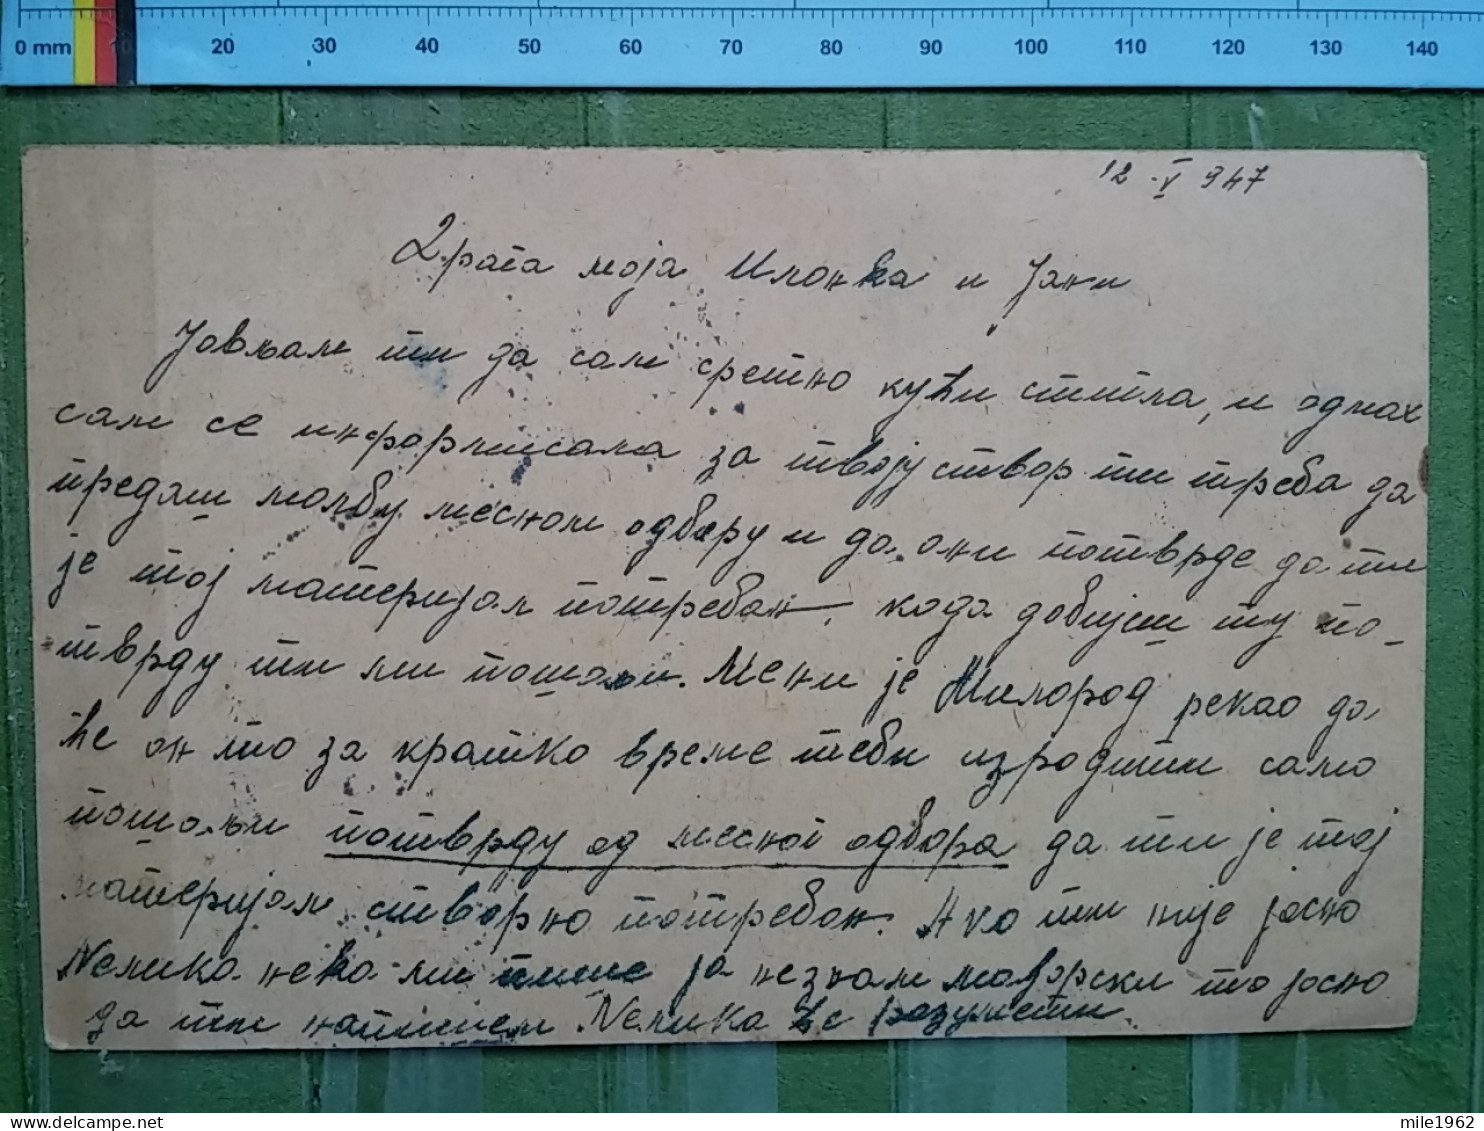 0 mm 10 20 30 40 50 60 70 80 90 100 110 120 130 140
12 -V 947
Драга моја Илонка и Јани
Јовљам ти да сам сретно кући стигла, и одмах
сам се информисала за твоју ствар ти треба да
предаш молбу месном одбору и да они потврде да ти
је тој материјал потребан, када добијеш ту по-
тврду ти ми пошаљи. Мени је Милорад рекао да
ће он то за кратко време теби израдити само
пошаљи потврду од месног одбора да ти је тај
материјал стварно потребан. Ако ти није јасно
Nелика нека ми пише ја незнам мађарски то јасно
да ти напишем Nелика ће разумети.
mile1962